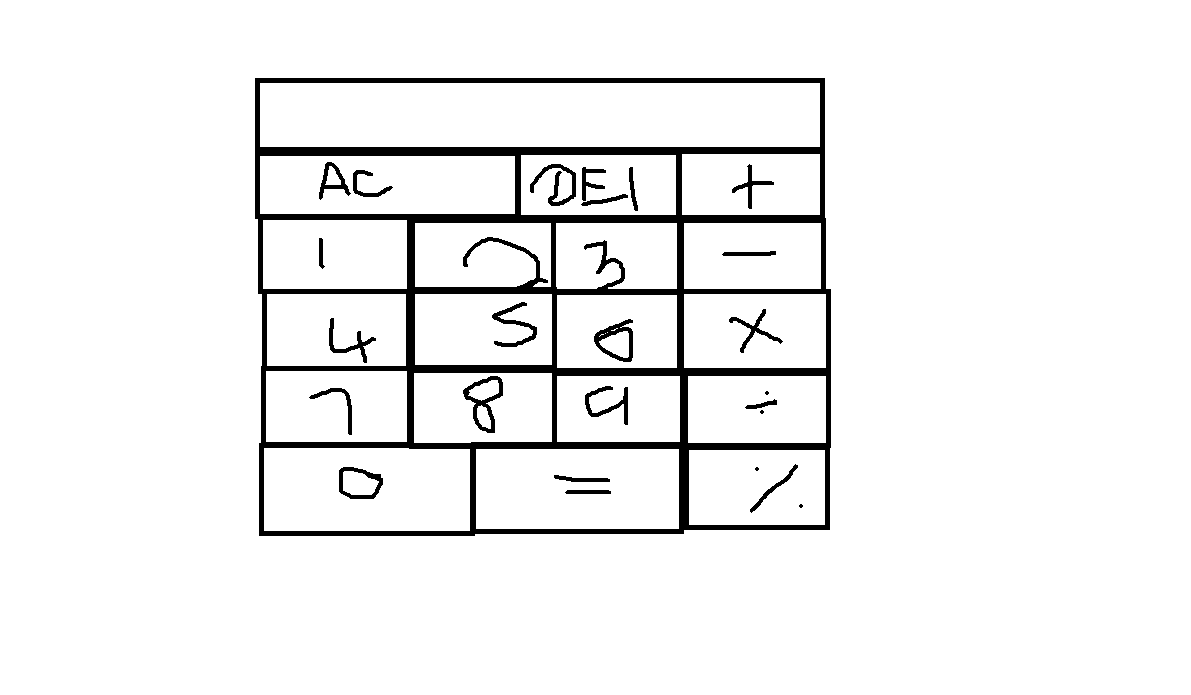 AC DEl +
1 2 3 −
4 5 6 ×
7 8 9 ÷
0 = %